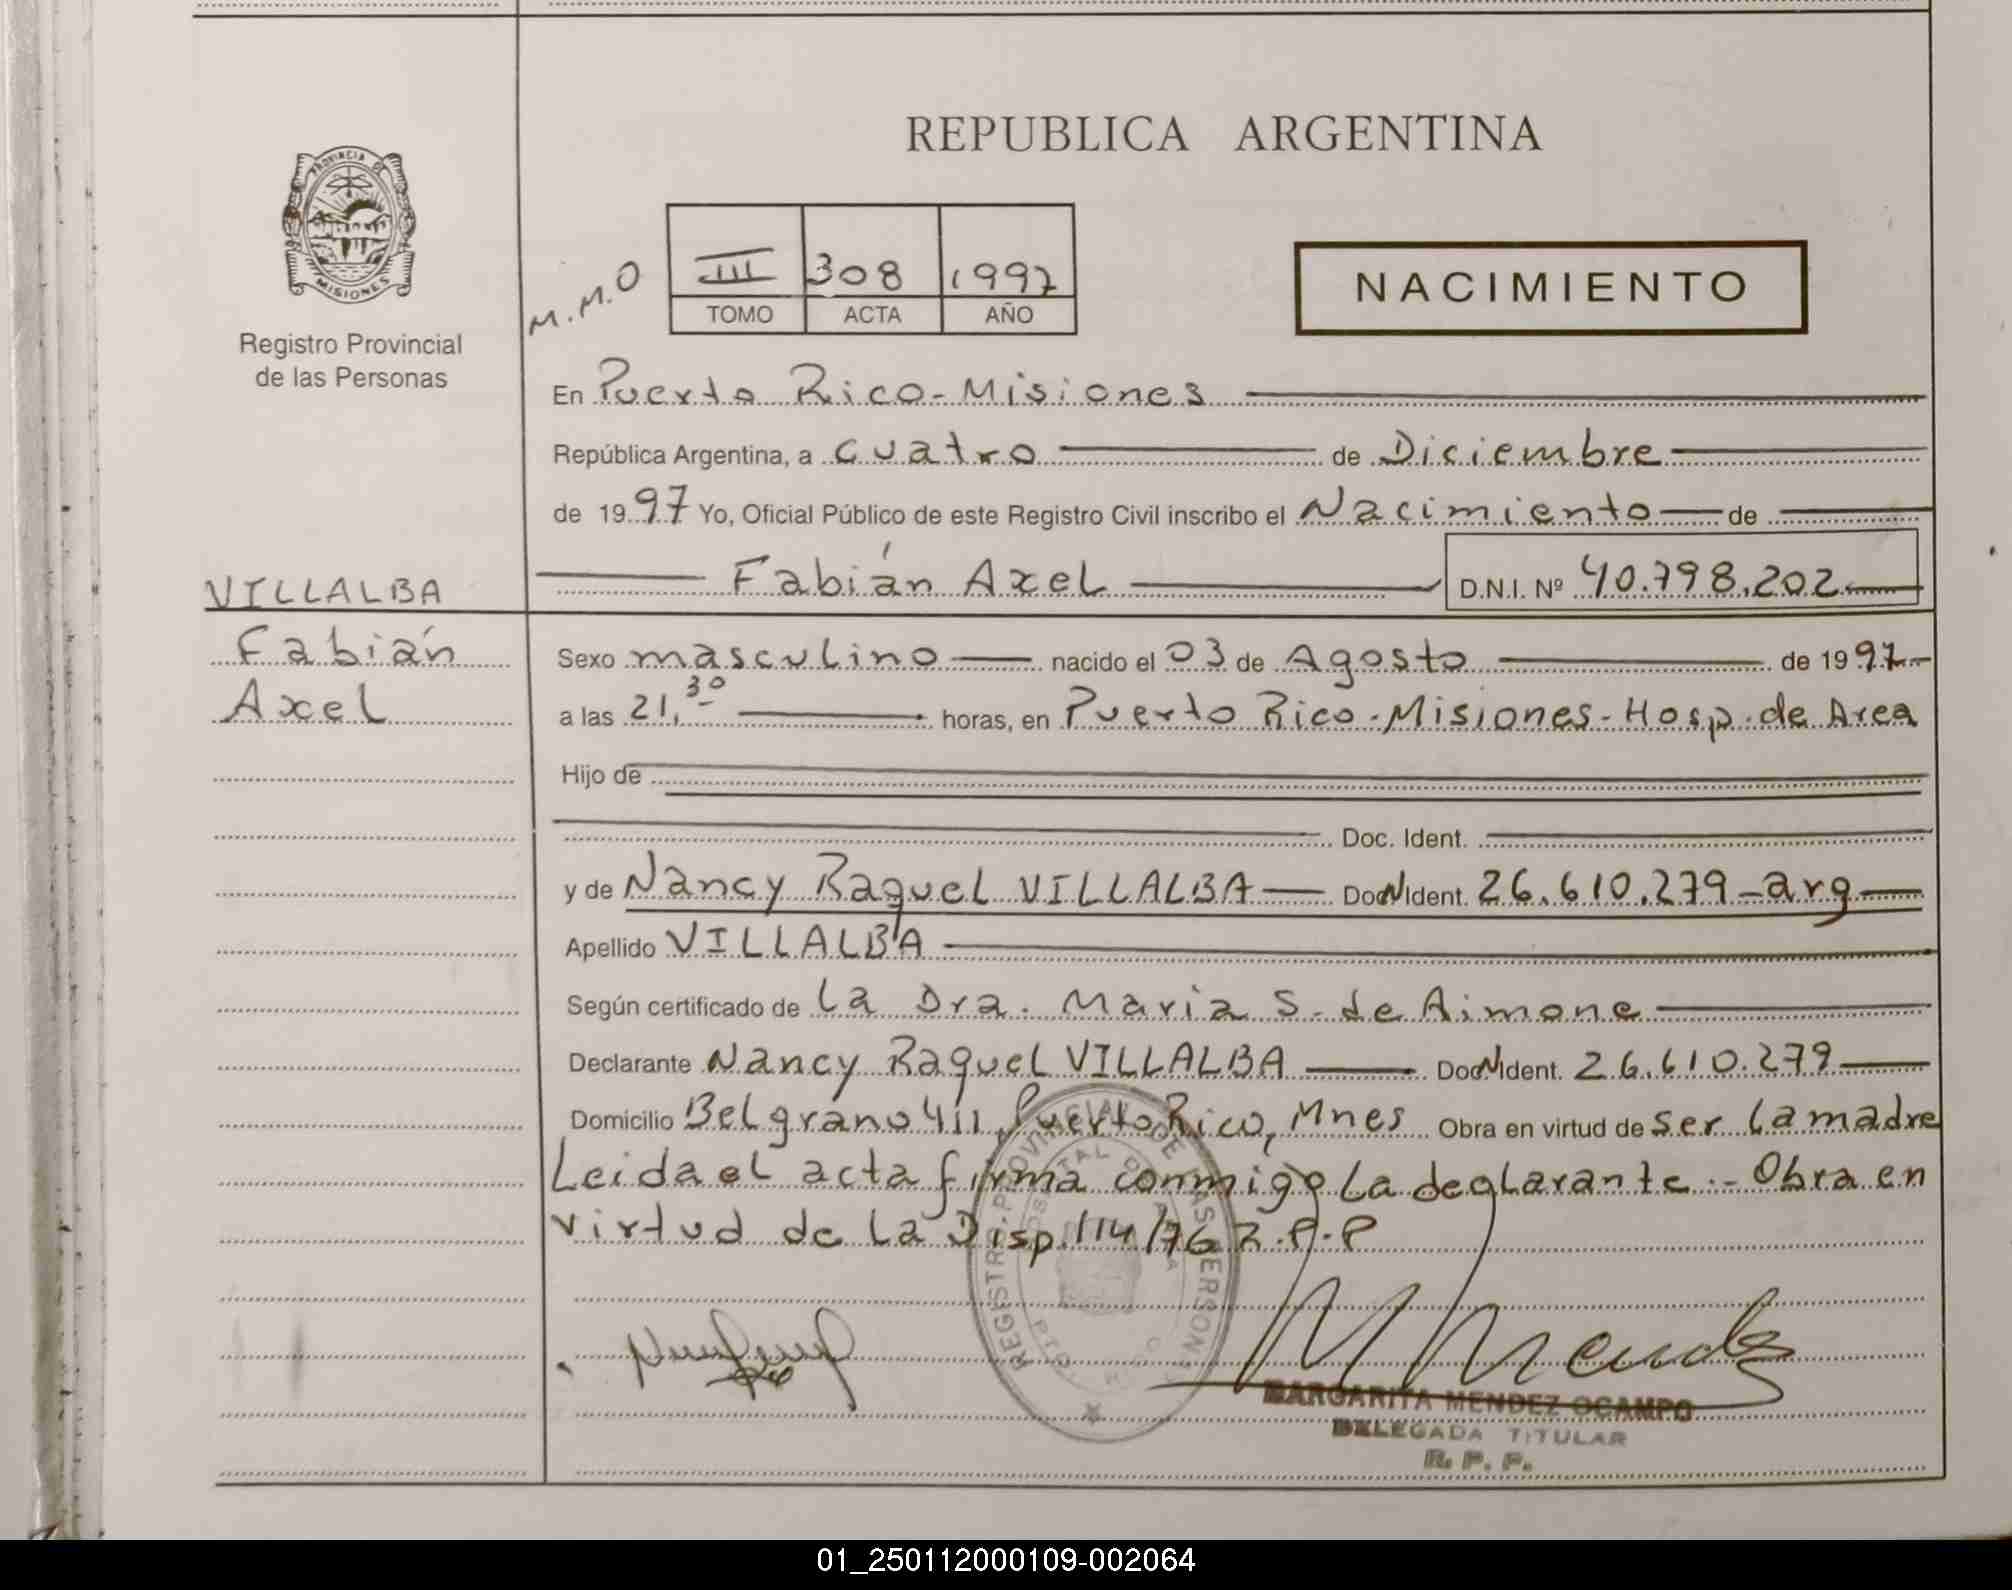 REPUBLICA ARGENTINA
PROVINCIA DE
MISIONES
Registro Provincial
de las Personas
M.M.O
III 308 1997
TOMO ACTA AÑO
NACIMIENTO
En Puerto Rico - Misiones
República Argentina, a cuatro de Diciembre
de 1997 Yo, Oficial Público de este Registro Civil inscribo el Nacimiento de
Fabián Axel D.N.I. Nº 40.798.202
VILLALBA
Fabián
Axel
Sexo masculino nacido el 03 de Agosto de 1997
a las 21,30 horas, en Puerto Rico - Misiones - Hosp. de Area
Hijo de
Doc. Ident.
y de Nancy Raquel VILLALBA Doc. Ident. 26.610.279 - arg
Apellido VILLALBA
Según certificado de la Dra. Maria S. de Aimone
Declarante Nancy Raquel VILLALBA Doc. Ident. 26.610.279
Domicilio Belgrano 411, Puerto Rico, Mnes Obra en virtud de ser la madre
Leida el acta firma conmigo la declarante.- Obra en
virtud de la Disp. 114/76 R.P.P
REGISTRO PROVINCIAL DE LAS PERSONAS
M Mendez
MARGARITA MENDEZ OCAMPO
DELEGADA TITULAR
R. P. P.
01_250112000109-002064